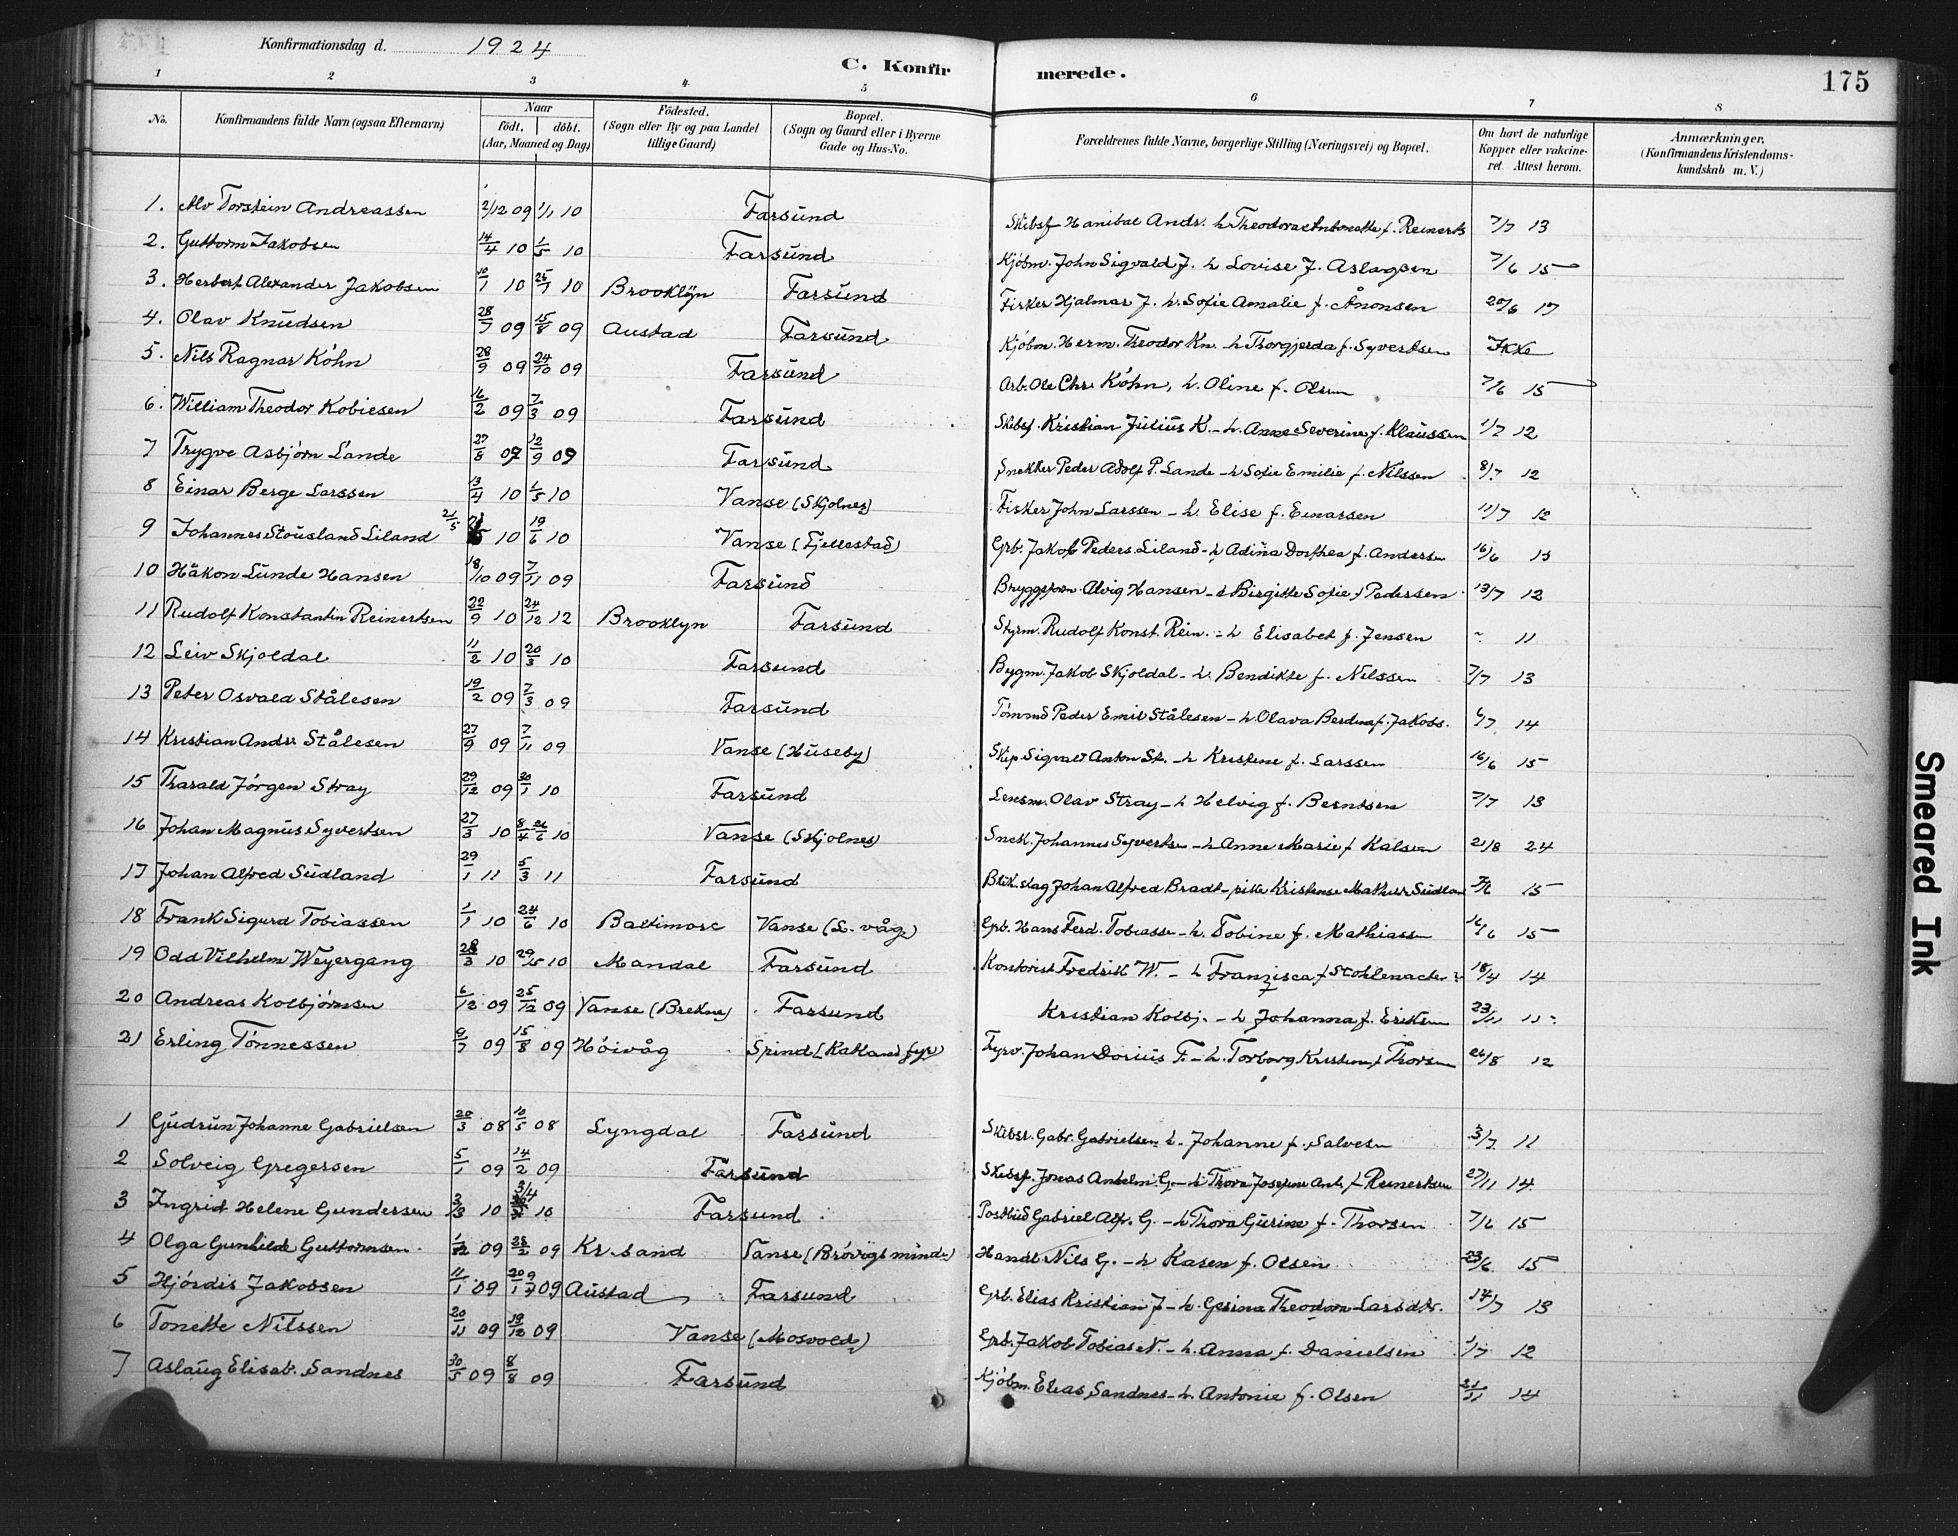 Konfirmationsdag d. 1924
C. Konfirmerede.
175
1 2 3 4 5 6 7 8
No.
Konfirmandens fulde Navn (ogsaa Efternavn)
Naar
födt. | döbt.
(Aar, Maaned og Dag)
Födested.
(Sogn eller By og paa Landet
tillige Gaard)
Bopæl.
(Sogn og Gaard eller i Byerne
Gade og Hus-No.
Forældrenes fulde Navne, borgerlige Stilling (Næringsvei) og Bopæl.
Om havt de naturlige
Kopper eller vakcine-
ret. Attest herom.
Anmærkninger,
(Konfirmandens Kristendoms-
kundskab m. V.)
1. Alv Torstein Andreassen 2/12 09 1/1 10 Farsund Skibsf. Hanibal Andr. h. Theodora Antonette f. Reinerts 7/7 13
2. Guttorm Jakobsen 14/4 10 1/5 10 Farsund Kjöbm. John Sigvald J. h. Lovise f. Aslagsen 7/6 15
3. Herbert Alexander Jakobsen 10/1 10 25/7 10 Brooklyn Farsund Fisker Hjalmar J. h. Sofie Amalie f. Ånonsen 20/6 17
4. Olav Knudsen 28/7 09 15/8 09 Austad Farsund Kjöbm. Herm. Theodor Kn. h. Thorgjerda f. Syvertsen Ikke
5. Nils Ragnar Köhn 28/9 09 24/10 09 Farsund Arb. Ole Chr. Köhn, h. Oline f. Olsen 7/6 15
6. William Theodor Kobiesen 16/2 09 7/3 09 Farsund Skibsf. Kristian Julius K. - h. Anne Severine f. Klaussen 1/7 12
7 Trygve Asbjörn Lande 27/8 09 12/9 09 Farsund Snekker Peder Adolf P. Lande - h. Sofie Emilie f. Nilssen 8/7 12
8 Einar Berge Larssen 13/4 10 1/5 10 Vanse (Skjolnes) Fisker John Larssen - h. Elise f. Einarsen 11/7 12
9 Johannes Stousland Liland 21/5 10 19/6 10 Vanse (Fjellestad) Grb. Jakob Peders. Liland - h. Adina Dorthea f. Andersen 16/6 15
10 Håkon Lunde Hansen 18/10 09 7/11 09 Farsund Bryggeform. Alvig Hansen - h. Birgitte Sofie f. Pedersen 13/7 12
11 Rudolf Konstantin Reinertsen 22/9 10 24/12 12 Brooklyn Farsund Styrm. Rudolf Konst. Rein. - h. Elisabet f. Jensen 11
12 Leiv Skjoldal 11/2 10 20/3 10 Farsund Bygm. Jakob Skjoldal - h. Bendikte f. Nilssen 7/7 13
13 Peter Osvald Stålesen 19/2 09 7/3 09 Farsund Tömmd Peder Emil Stålesen - h. Olava Berdine f. Jakobs. 14
14 Kristian Andr. Stålesen 27/9 09 7/11 09 Vanse (Huseby) Skip. Sigvald Anton St. - h. Kristine f. Larssen 16/6 15
15 Tharald Jörgen Stray 29/12 09 30/1 10 Farsund Lensm. Olav Stray - h. Helvig f. Berntsen 7/7 13
16 Johan Magnus Syvertsen 27/3 10 8/4 26/6 10 Vanse (Skjolnes) Snek. Johannes Syvertsen - h. Anne Marie f. Kalsen 21/8 24
17 Johan Alfred Sudland 29/1 11 5/3 11 Farsund Blik.slag Johan Alfred Bradt - pike Kristense Mathea Sudland 7/6 15
18 Frank Sigurd Tobiassen 1/1 10 24/6 10 Baltimore Vanse (L. våg) Grb. Hans Ferd. Tobiasse - h. Tobine f. Mathiassen 16/6 15
19 Odd Vilhelm Weyergang 28/3 10 29/5 10 Mandal Farsund Kontorist Fredrik W. - h. Franzisca f. Stohlenacter 18/4 14
20 Andreas Kolbjörnsen 6/12 09 25/12 09 Vanse (Brekne) Farsund Kristian Kolbj. - h. Johanna f. Eriksen 23/11 11
21 Erling Tönnessen 9/7 09 15/8 09 Höivåg Spind (Katland fyr) Fyrv. Johan Dorius T. - h. Torborg Kristine f. Thorsen 26/8 12
1 Gudrun Johanne Gabrielsen 20/3 08 10/5 08 Lyngdal Farsund Skibsr. Gabr. Gabrielsen h. Johanne f. Salvesen 3/7 11
2 Solveig Gregersen 5/1 09 14/2 09 Farsund Skibsf. Jonas Anhelm G. - h. Thora Josefine Ant. f. Reinertsen 27/11 14
3 Ingrid Helene Gundersen 3/3 10 3/4 10 Farsund Postbud Gabriel Alf. G. - h. Thora Gurine f. Thorsen 7/6 15
4 Olga Gunhilde Guttormsen 1/12 09 28/2 09 Kr.sand Vanse (Brövigs minde) Handl. Nils G. - h. Kasen f. Olsen 23/6 15
5 Hjördis Jakobsen 11/1 09 20/1 9/7 09 Austad Farsund Grb. Elias Kristian J - h. Gesina Theodora Larsdtr. 14/7 13
6 Tonette Nilssen 20/11 09 19/12 09 Vanse (Mosvold) Grb. Jakob Tobias N. - h. Anna f. Danielsen 1/7 12
7 Aslaug Elisab. Sandnes 30/5 09 8/8 09 Farsund Kjöbm. Elias Sandnes - h. Antonie f. Olsen 21/11 14
Smeared Ink